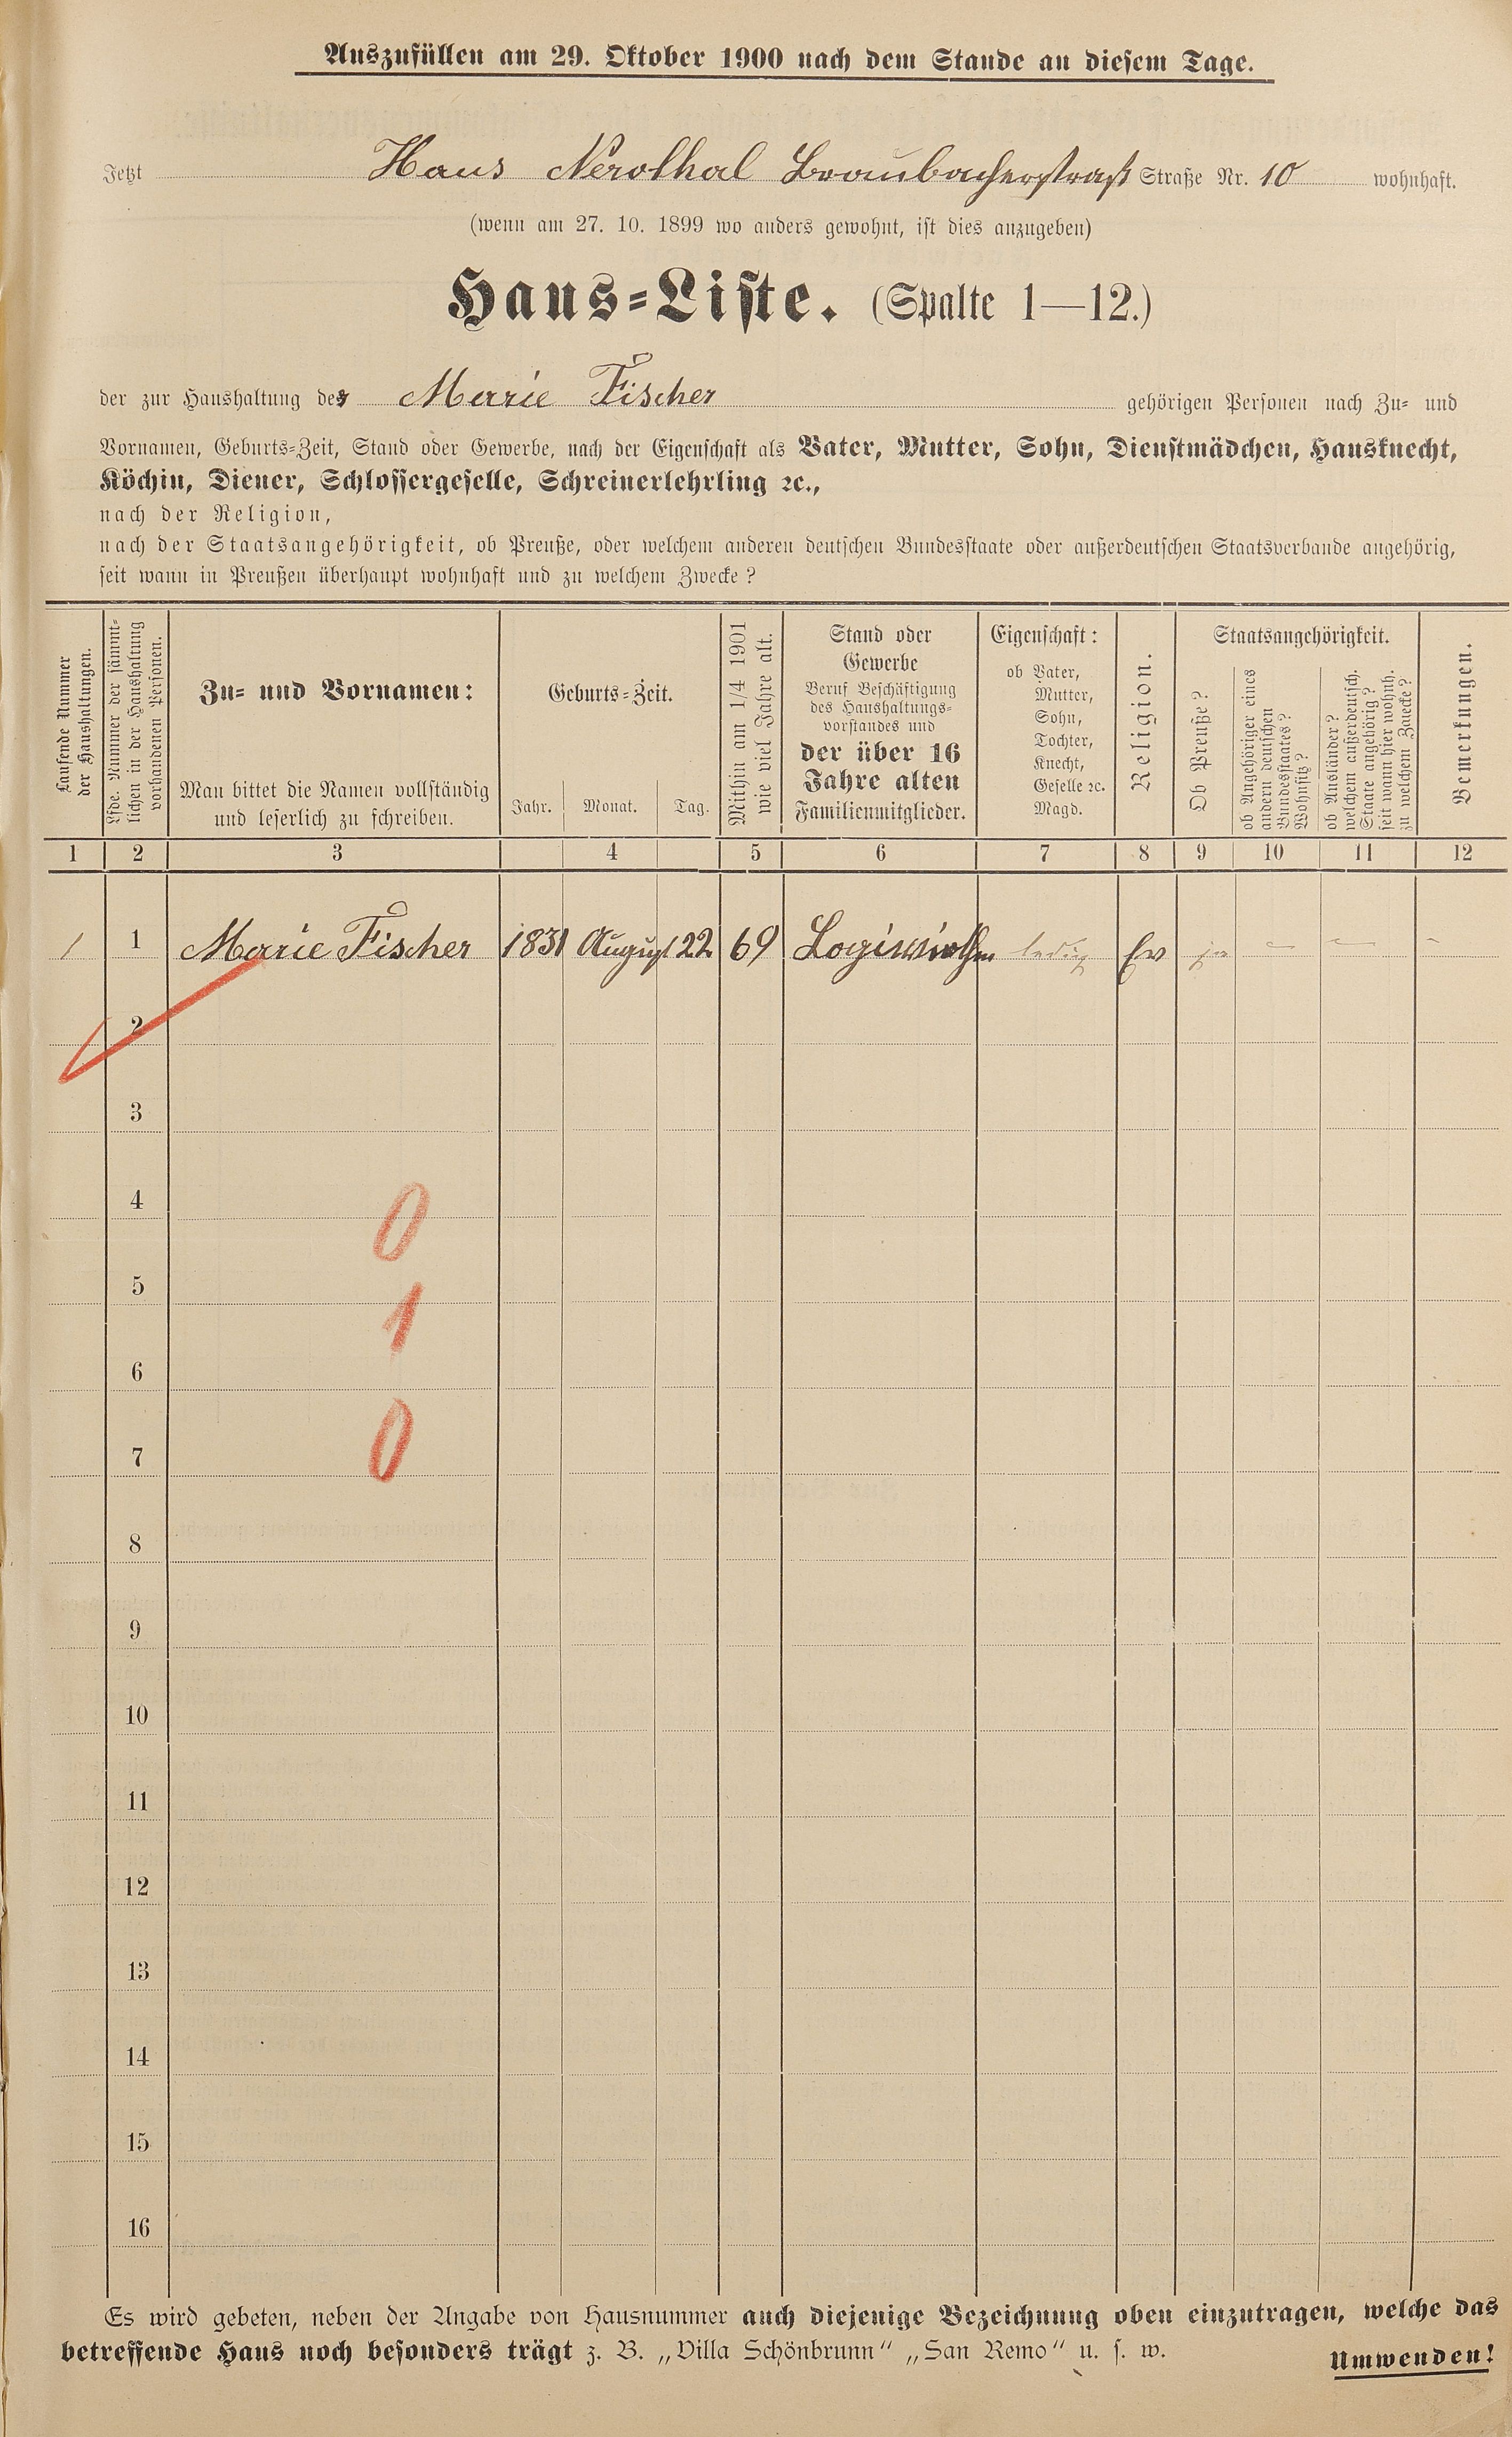 Auszufüllen am 29. Oktober 1900 nach dem Stande an diesem Tage.
Jetzt Haus Nerothal Braubacherstraß Straße Nr. 10 wohnhaft.
(wenn am 27. 10. 1899 wo anders gewohnt, ist dies anzugeben)
Haus-Liste. (Spalte 1—12.)
der zur Haushaltung der Marie Fischer gehörigen Personen nach Zu- und
Vornamen, Geburts-Zeit, Stand oder Gewerbe, nach der Eigenschaft als Vater, Mutter, Sohn, Dienstmädchen, Hausknecht,
Köchin, Diener, Schlossergeselle, Schreinerlehrling ꝛc.,
nach der Religion,
nach der Staatsangehörigkeit, ob Preuße, oder welchem anderen deutschen Bundesstaate oder außerdeutschen Staatsverbande angehörig,
seit wann in Preußen überhaupt wohnhaft und zu welchem Zwecke?
Laufende Nummer
der Haushaltungen.
Lfde. Nummer der sämmt-
lichen in der Haushaltung
vorhandenen Personen.
Zu- und Vornamen:
Man bittet die Namen vollständig
und leserlich zu schreiben.
Geburts-Zeit.
Jahr. Monat. Tag.
Mithin am 1/4 1901
wie viel Jahre alt.
Stand oder
Gewerbe
Beruf Beschäftigung
des Haushaltungs-
vorstandes und
der über 16
Jahre alten
Familienmitglieder.
Eigenschaft:
ob Vater,
Mutter,
Sohn,
Tochter,
Knecht,
Geselle ꝛc.
Magd.
Religion.
Staatsangehörigkeit.
Ob Preuße?
ob Angehöriger eines
andern deutschen
Bundesstaates?
Wohnsitz?
ob Ausländer?
welchem außerdeutsch.
Staate angehörig?
seit wann hier wohnh.
zu welchem Zwecke?
Bemerkungen.
1 2 3 4 5 6 7 8 9 10 11 12
1 1 Marie Fischer 1831 August 22 69 Logiswirthin ledig Ev ja — — -
2
3
4
0
5
1
6
0
7
8
9
10
11
12
13
14
15
16
Es wird gebeten, neben der Angabe von Hausnummer auch diejenige Bezeichnung oben einzutragen, welche das
betreffende Haus noch besonders trägt z. B. „Villa Schönbrunn“ „San Remo“ u. s. w.
Umwenden!